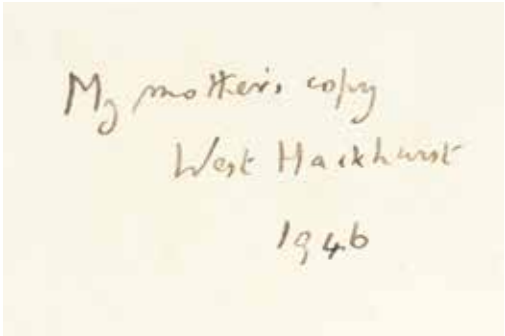 My mother's copy
West Hackhurst
1946